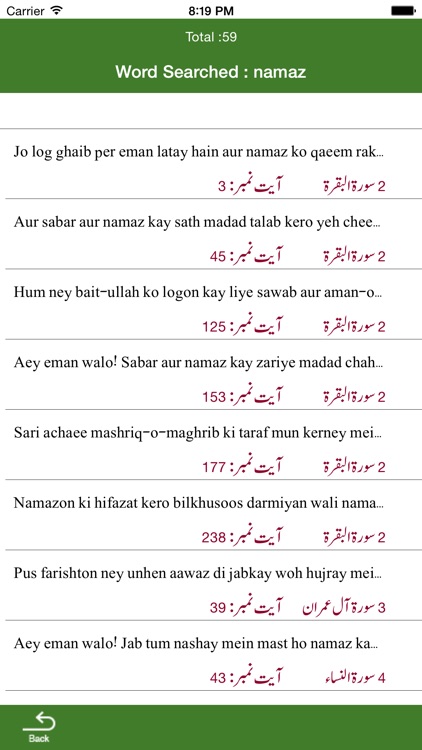 Carrier 8:19 PM
Total :59
Word Searched : namaz
Jo log ghaib per eman latay hain aur namaz ko qaeem rak...
2 سورۃ البقرۃ آیت نمبر: 3
Aur sabar aur namaz kay sath madad talab kero yeh chee...
2 سورۃ البقرۃ آیت نمبر: 45
Hum ney bait-ullah ko logon kay liye sawab aur aman-o...
2 سورۃ البقرۃ آیت نمبر: 125
Aey eman walo! Sabar aur namaz kay zariye madad chah...
2 سورۃ البقرۃ آیت نمبر: 153
Sari achaee mashriq-o-maghrib ki taraf mun kerney mei...
2 سورۃ البقرۃ آیت نمبر: 177
Namazon ki hifazat kero bilkhusoos darmiyan wali nama...
2 سورۃ البقرۃ آیت نمبر: 238
Pus farishton ney unhen aawaz di jabkay woh hujray mei...
3 سورۃ آل عمران آیت نمبر: 39
Aey eman walo! Jab tum nashay mein mast ho namaz ka...
4 سورۃ النساء آیت نمبر: 43
Back